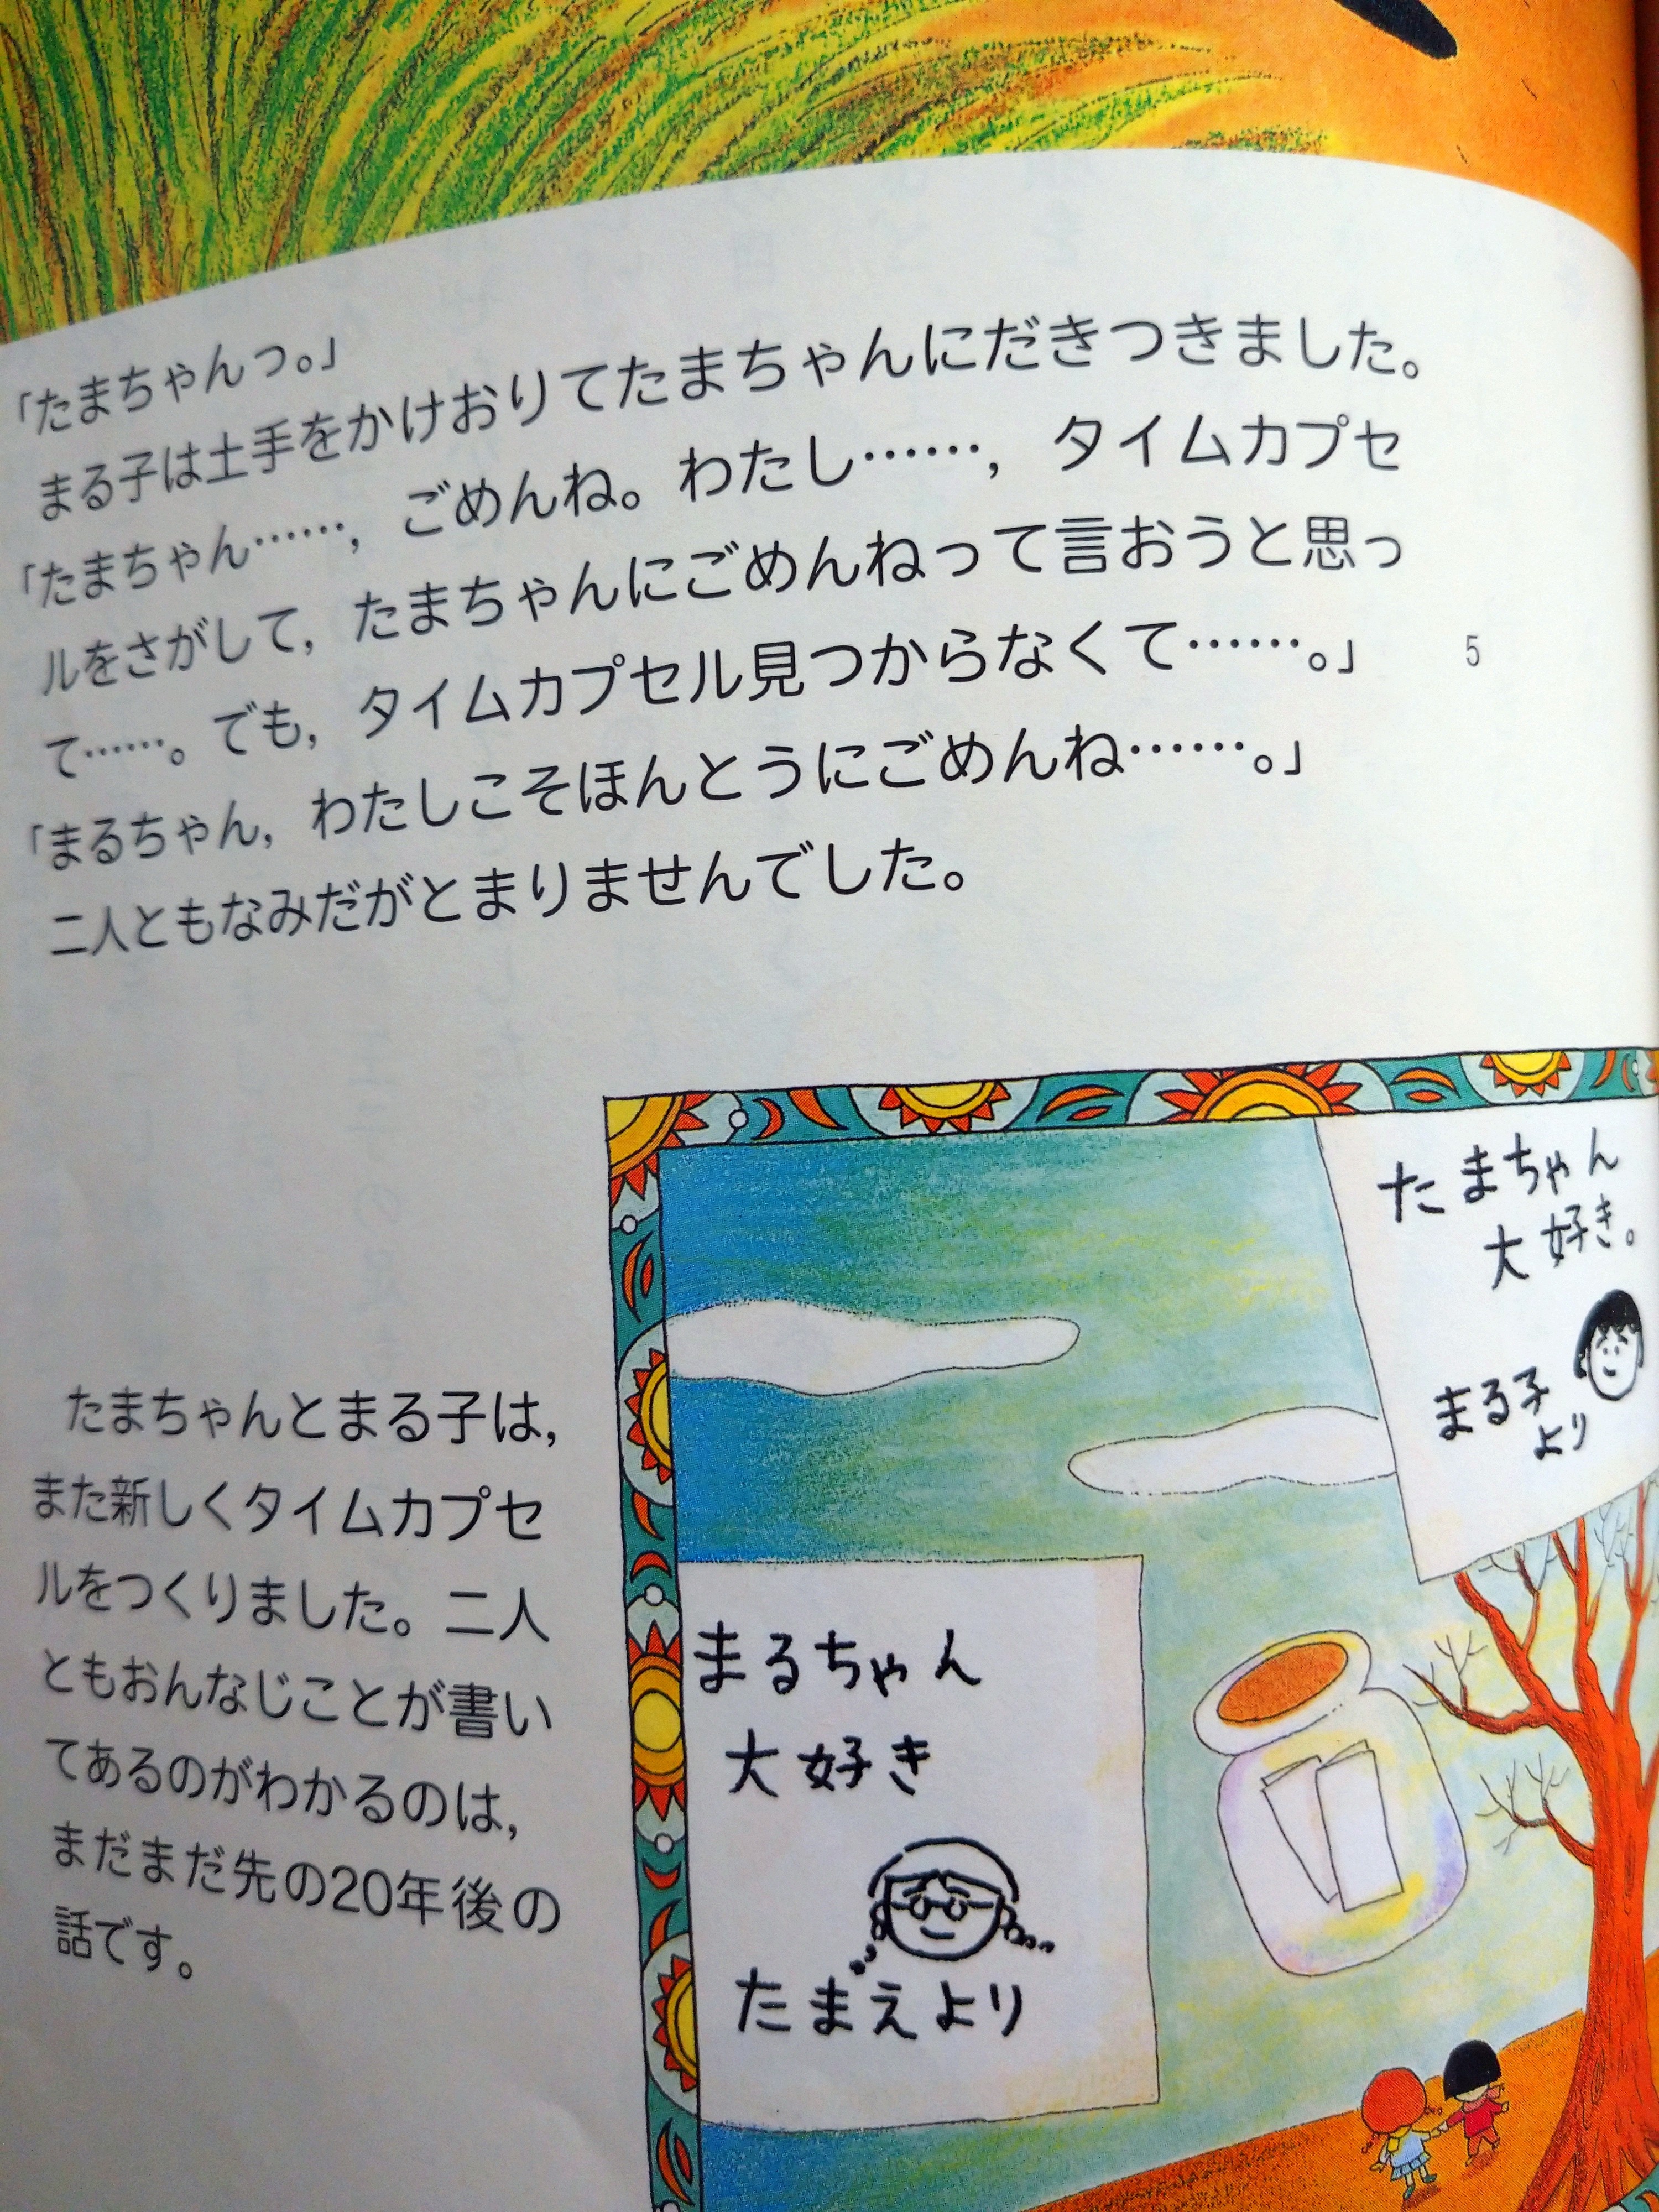 「たまちゃんっ。」
まる子は土手をかけおりてたまちゃんにだきつきました。
「たまちゃん……，ごめんね。わたし……，タイムカプセ
ルをさがして，たまちゃんにごめんねって言おうと思っ
て……。でも，タイムカプセル見つからなくて……。」
5
「まるちゃん，わたしこそほんとうにごめんね……。」
二人ともなみだがとまりませんでした。
たまちゃん
大好き。
まる子
より
たまちゃんとまる子は，
また新しくタイムカプセ
ルをつくりました。二人
ともおんなじことが書い
てあるのがわかるのは，
まだまだ先の20年後の
話です。
まるちゃん
大好き
たまえより